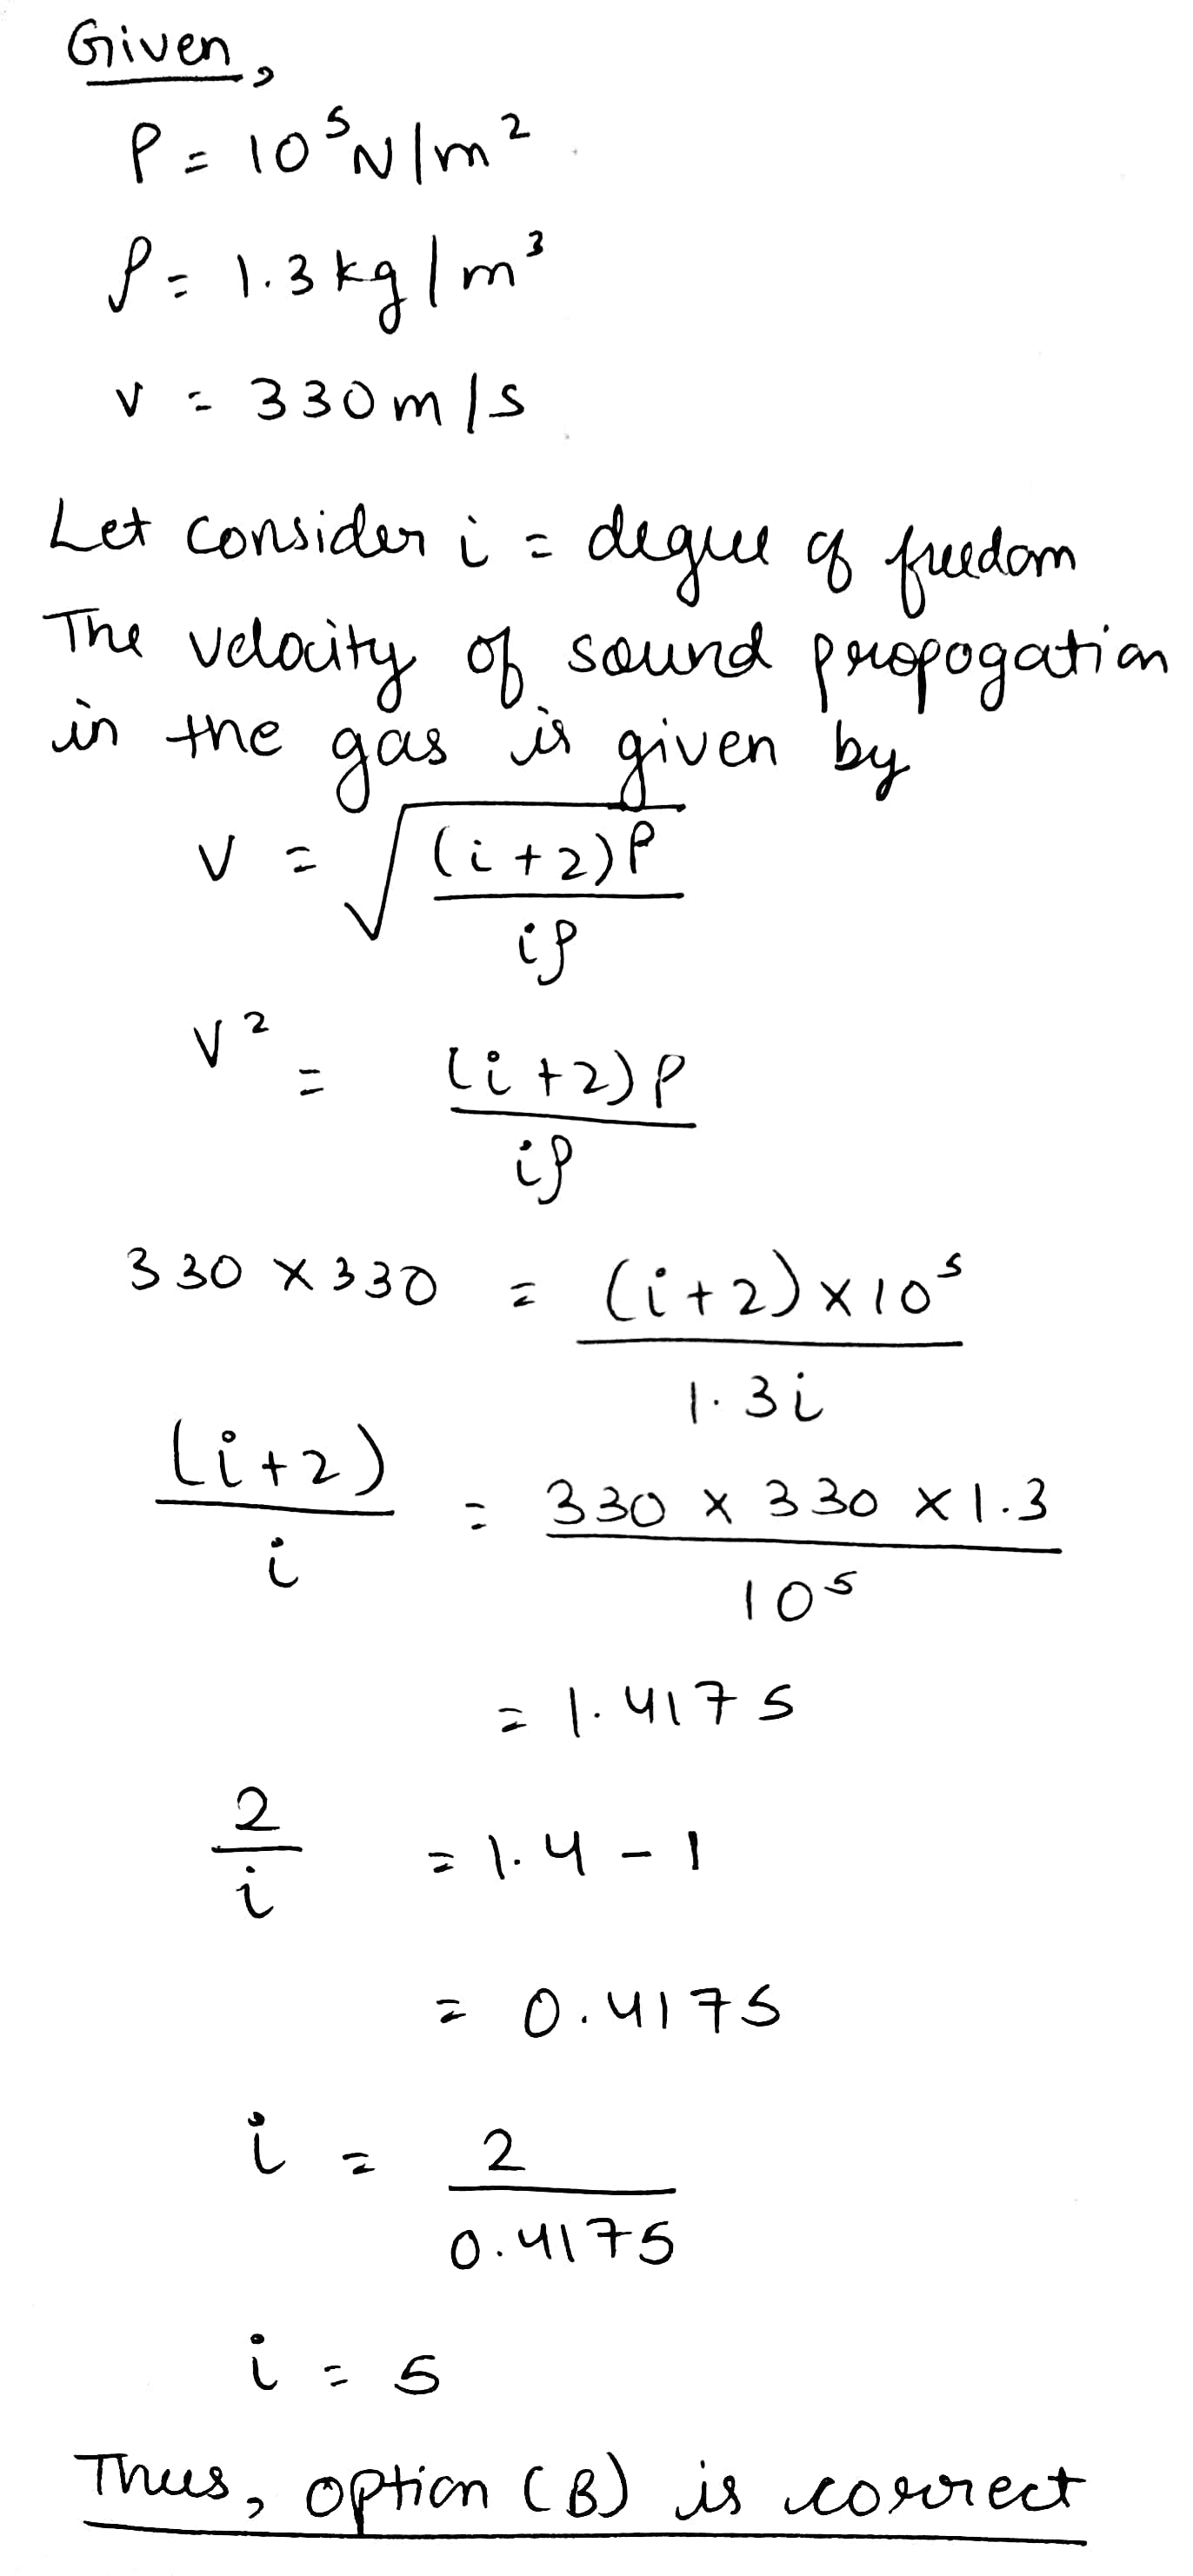 Given,
P = 10⁵ N/m²
ρ = 1.3 kg/m³
v = 330 m/s
Let consider i = degree of freedom
The velocity of sound propogation
in the gas is given by
V = √((i+2)P / iρ)
V² = (i+2)P / iρ
330 × 330 = (i+2) × 10⁵ / 1.3i
(i+2) / i = 330 × 330 × 1.3 / 10⁵
= 1.4175
2 / i = 1.4 - 1
= 0.4175
i = 2 / 0.4175
i = 5
Thus, option (B) is correct